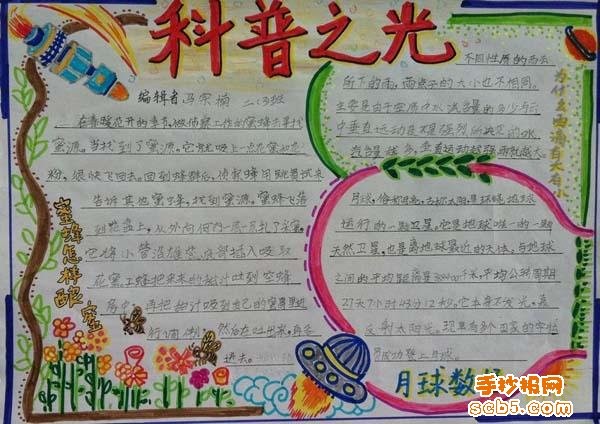 科普之光
编辑者 冯宗楠 二、3班
在春暖花开的季节,做侦察工作的蜜蜂去寻找
蜜源。当找到了蜜源。它就吸上一点花蜜和花
粉,很快飞回去。回到蜂群后,使就蜂用跳舞试来
告诉其他蜜蜂,找到蜜源。蜜蜂飞落
到花盘上,从外向
它蜂小管沿雄蕊底部插入吸取
花蜜。工蜂把采来的 汁吐到空蜂
房中,再把 汁吸到自己的蜜胃里进
行调制,然后在吐出来,再吞
进去。
蜜蜂怎样酿蜜
不同性质的雨云
所下的雨,雨点子的大小也不相同。
主要是由于空质中水汽含量的多少与云
中垂直运动是不是强烈所决定的水。
汽含量越多,垂直运动越强雨就越大。
为什么雨滴有大有小
月球,俗称月亮,古称太阴,是环绕地球
运行的一颗卫星。它是地球唯一的一颗
天然卫星,也是离地球最近的天体,与地球
之间的平均距离是384400千米,平均公转周期
27天7小时43分12秒,它本身不发光,靠
反射太阳光。现已有多个国家的宇航
员成功登上月球。
月球数
手抄报网
scb5.com